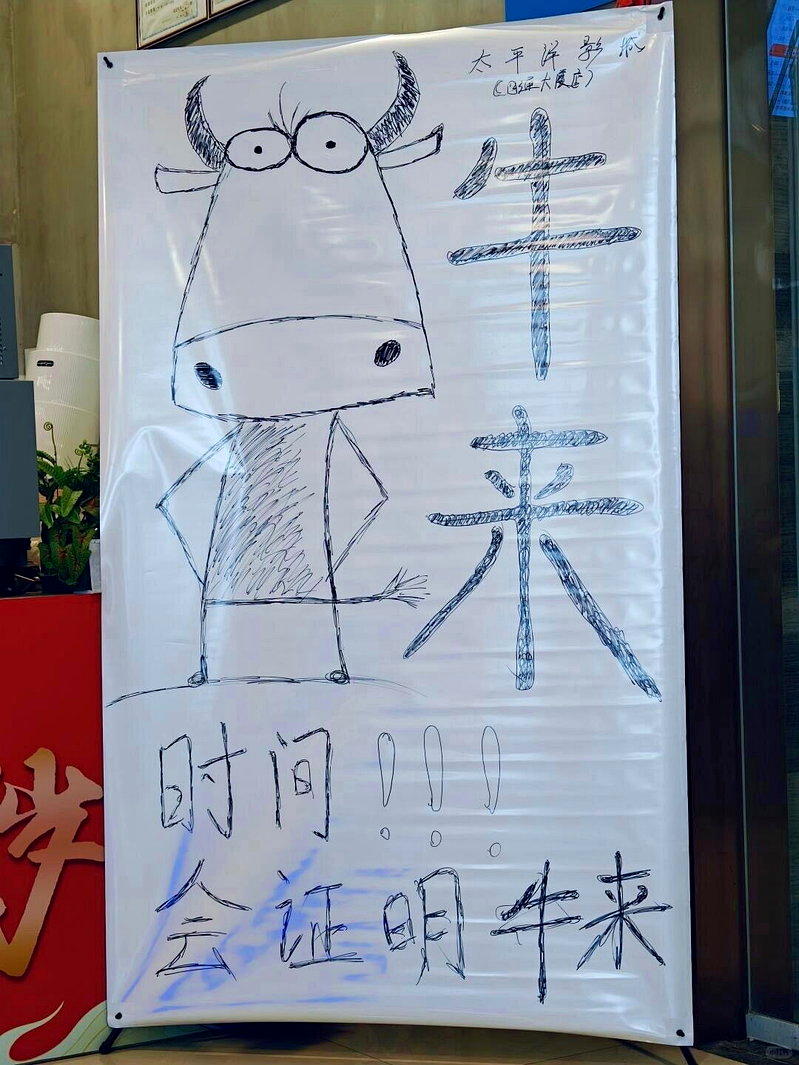 太平洋影城
大厦店)
牛
来
时间!!!
会证明牛来